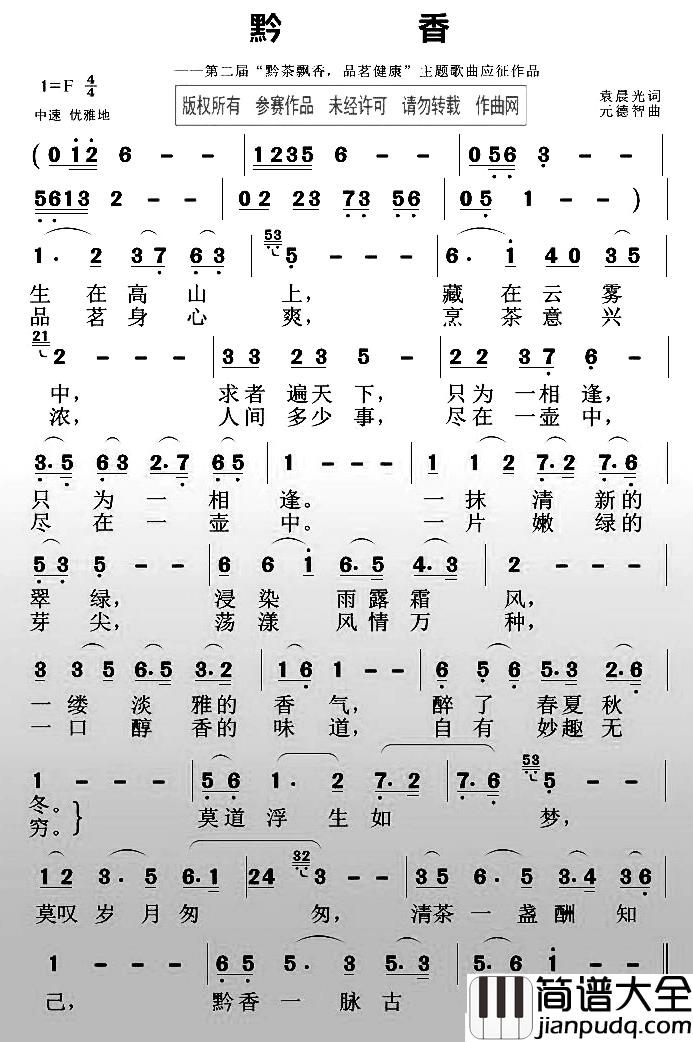 黔 香
——第二届“黔茶飘香，品茗健康”主题歌曲应征作品
1=F 4/4
中速 优雅地
版权所有 参赛作品 未经许可 请勿转载 作曲网
袁晨光词
元德智曲
( 0 12 6 - | 1235 6 - - | 056 3 -
5613 2 - - | 02 23 73 56 | 05 1 - - )
1. 2 37 63 | 53 5 - - - | 6. 1 40 35
生 在 高 山 上， 藏 在 云 雾
品 茗 身 心 爽， 烹 茶 意 兴
21 2 - - - | 33 23 5 - | 22 37 6 -
中， 求者 遍天 下， 只为 一相 逢，
浓， 人间 多少 事， 尽在 一壶 中，
3.5 63 2.7 65 | 1 - - - | 1 12 7.2 7.6
只 为 一 相 逢。 一 抹 清 新的
尽 在 一 壶 中。 一 片 嫩 绿的
53 5 - - | 6 61 6.5 4.3 | 2 - - -
翠 绿， 浸 染 雨露霜 风，
芽 尖， 荡 漾 风情万 种，
3 35 6.5 3.2 | 16 1 - - | 6 56 5.3 2.6
一 缕 淡 雅的 香 气， 醉 了 春夏秋
一 口 醇 香的 味 道， 自 有 妙趣无
1 - - - | 56 1. 2 7.2 | 7.6 53 5 - -
冬。
穷。 } 莫道 浮 生 如 梦，
12 3. 5 6.1 | 24 32 3 - - | 35 6. 5 3.2 36
莫叹 岁 月 匆 匆， 清茶 一 盏 酬 知
1 - - - | 65 5. 3 5.2 | 6 - - - ‖
己， 黔香 一 脉 古
简谱大全
jianpudq.com